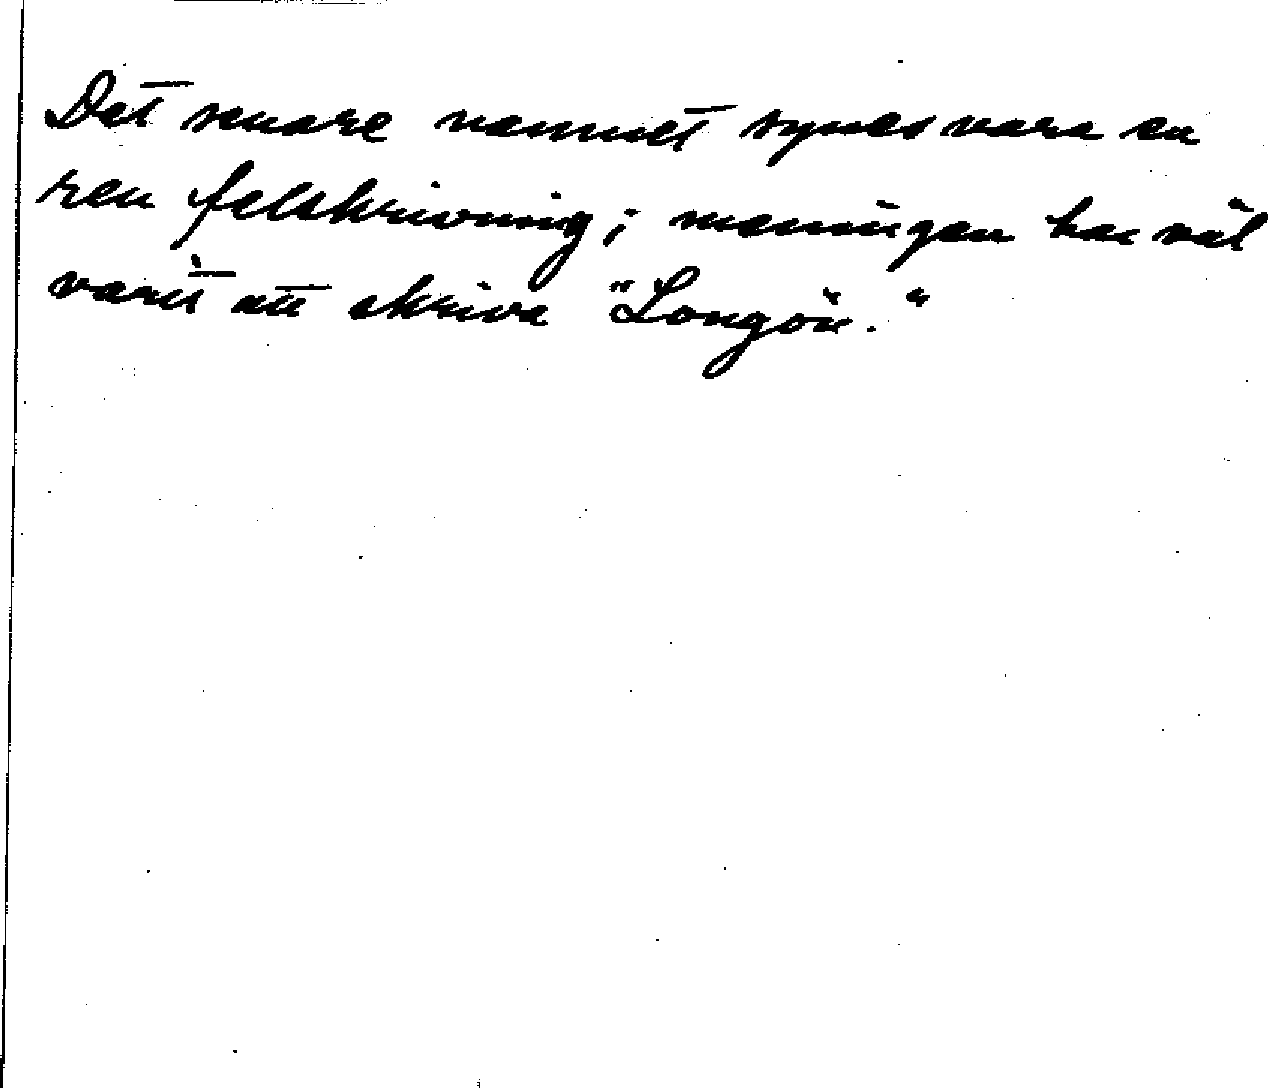 Det senare namnet synes vara en
ren felskrivning; meningen har väl
varit att skriva "Longön."